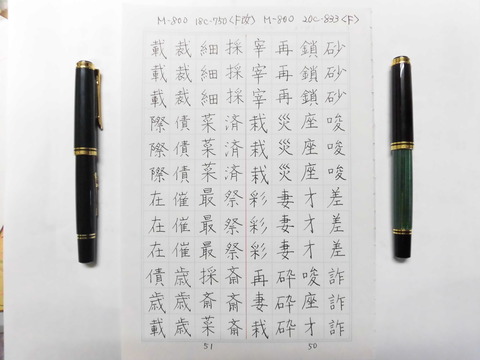 M-800 18C-750〈F改〉 M-800 20C-833〈F〉
砂砂砂唆唆唆差差差詐詐詐
鎖鎖鎖座座座才才才唆座才
再再再災災災妻妻妻砕砕砕
宰宰宰栽栽栽彩彩彩再妻栽
採採採済済済祭祭祭斎斎斎
細細細菜菜菜最最最採斎菜
裁裁裁債債債催催催歳歳歳
載載載際際際在在在債歳載
51 50